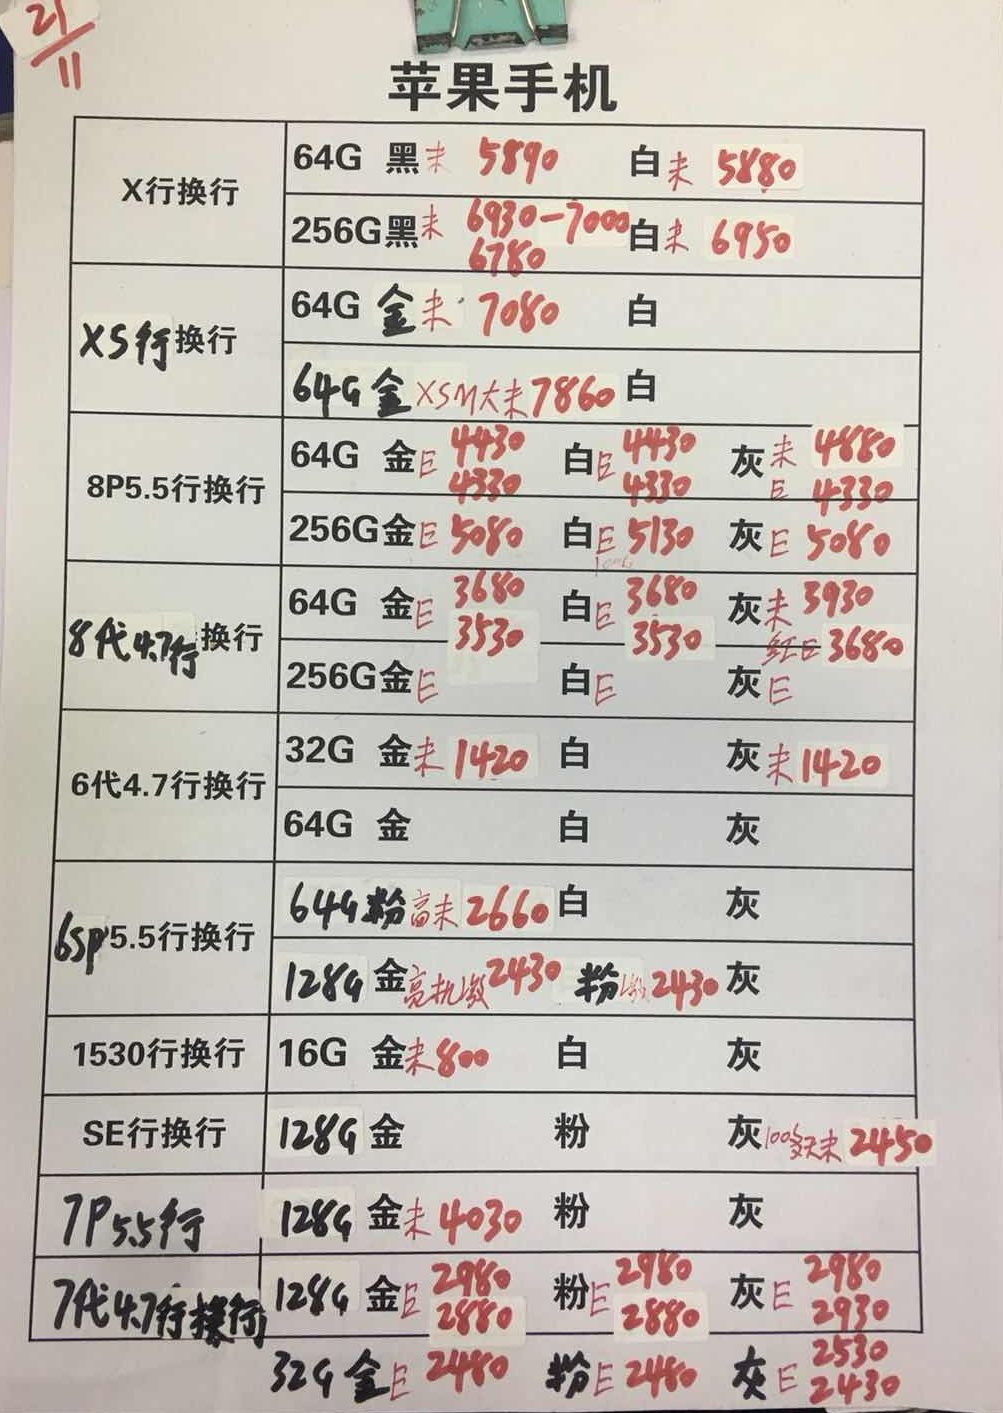 21/11
苹果手机
X行换行
64G 黑未 5890 白未 5880
256G黑未 6930-7000 白未 6950
6780
XS行换行
64G 金未 7080 白
64G 金 XSM大未 7860 白
8P5.5行换行
64G 金E 4430 白E 4430 灰未 4880
4330 4330 E 4330
256G金E 5080 白E 5130 灰E 5080
8代4.7行换行
64G 金E 3680 白E 3680 灰未 3930
3530 3530 红E 3680
256G金E 白E 灰E
6代4.7行换行
32G 金未 1420 白 灰未 1420
64G 金 白 灰
6SP5.5行换行
64G 粉高未 2660 白 灰
128G 金高机激 2430 粉 2430 灰
1530行换行
16G 金未 800 白 灰
SE行换行
128G 金 粉 灰 100多天未 2450
7P5.5行
128G 金未 4030 粉 灰
7代4.7行换行
128G 金E 2980 粉E 2980 灰E 2980
2880 2880 2930
32G 金E 2480 粉E 2480 灰E 2530
2430